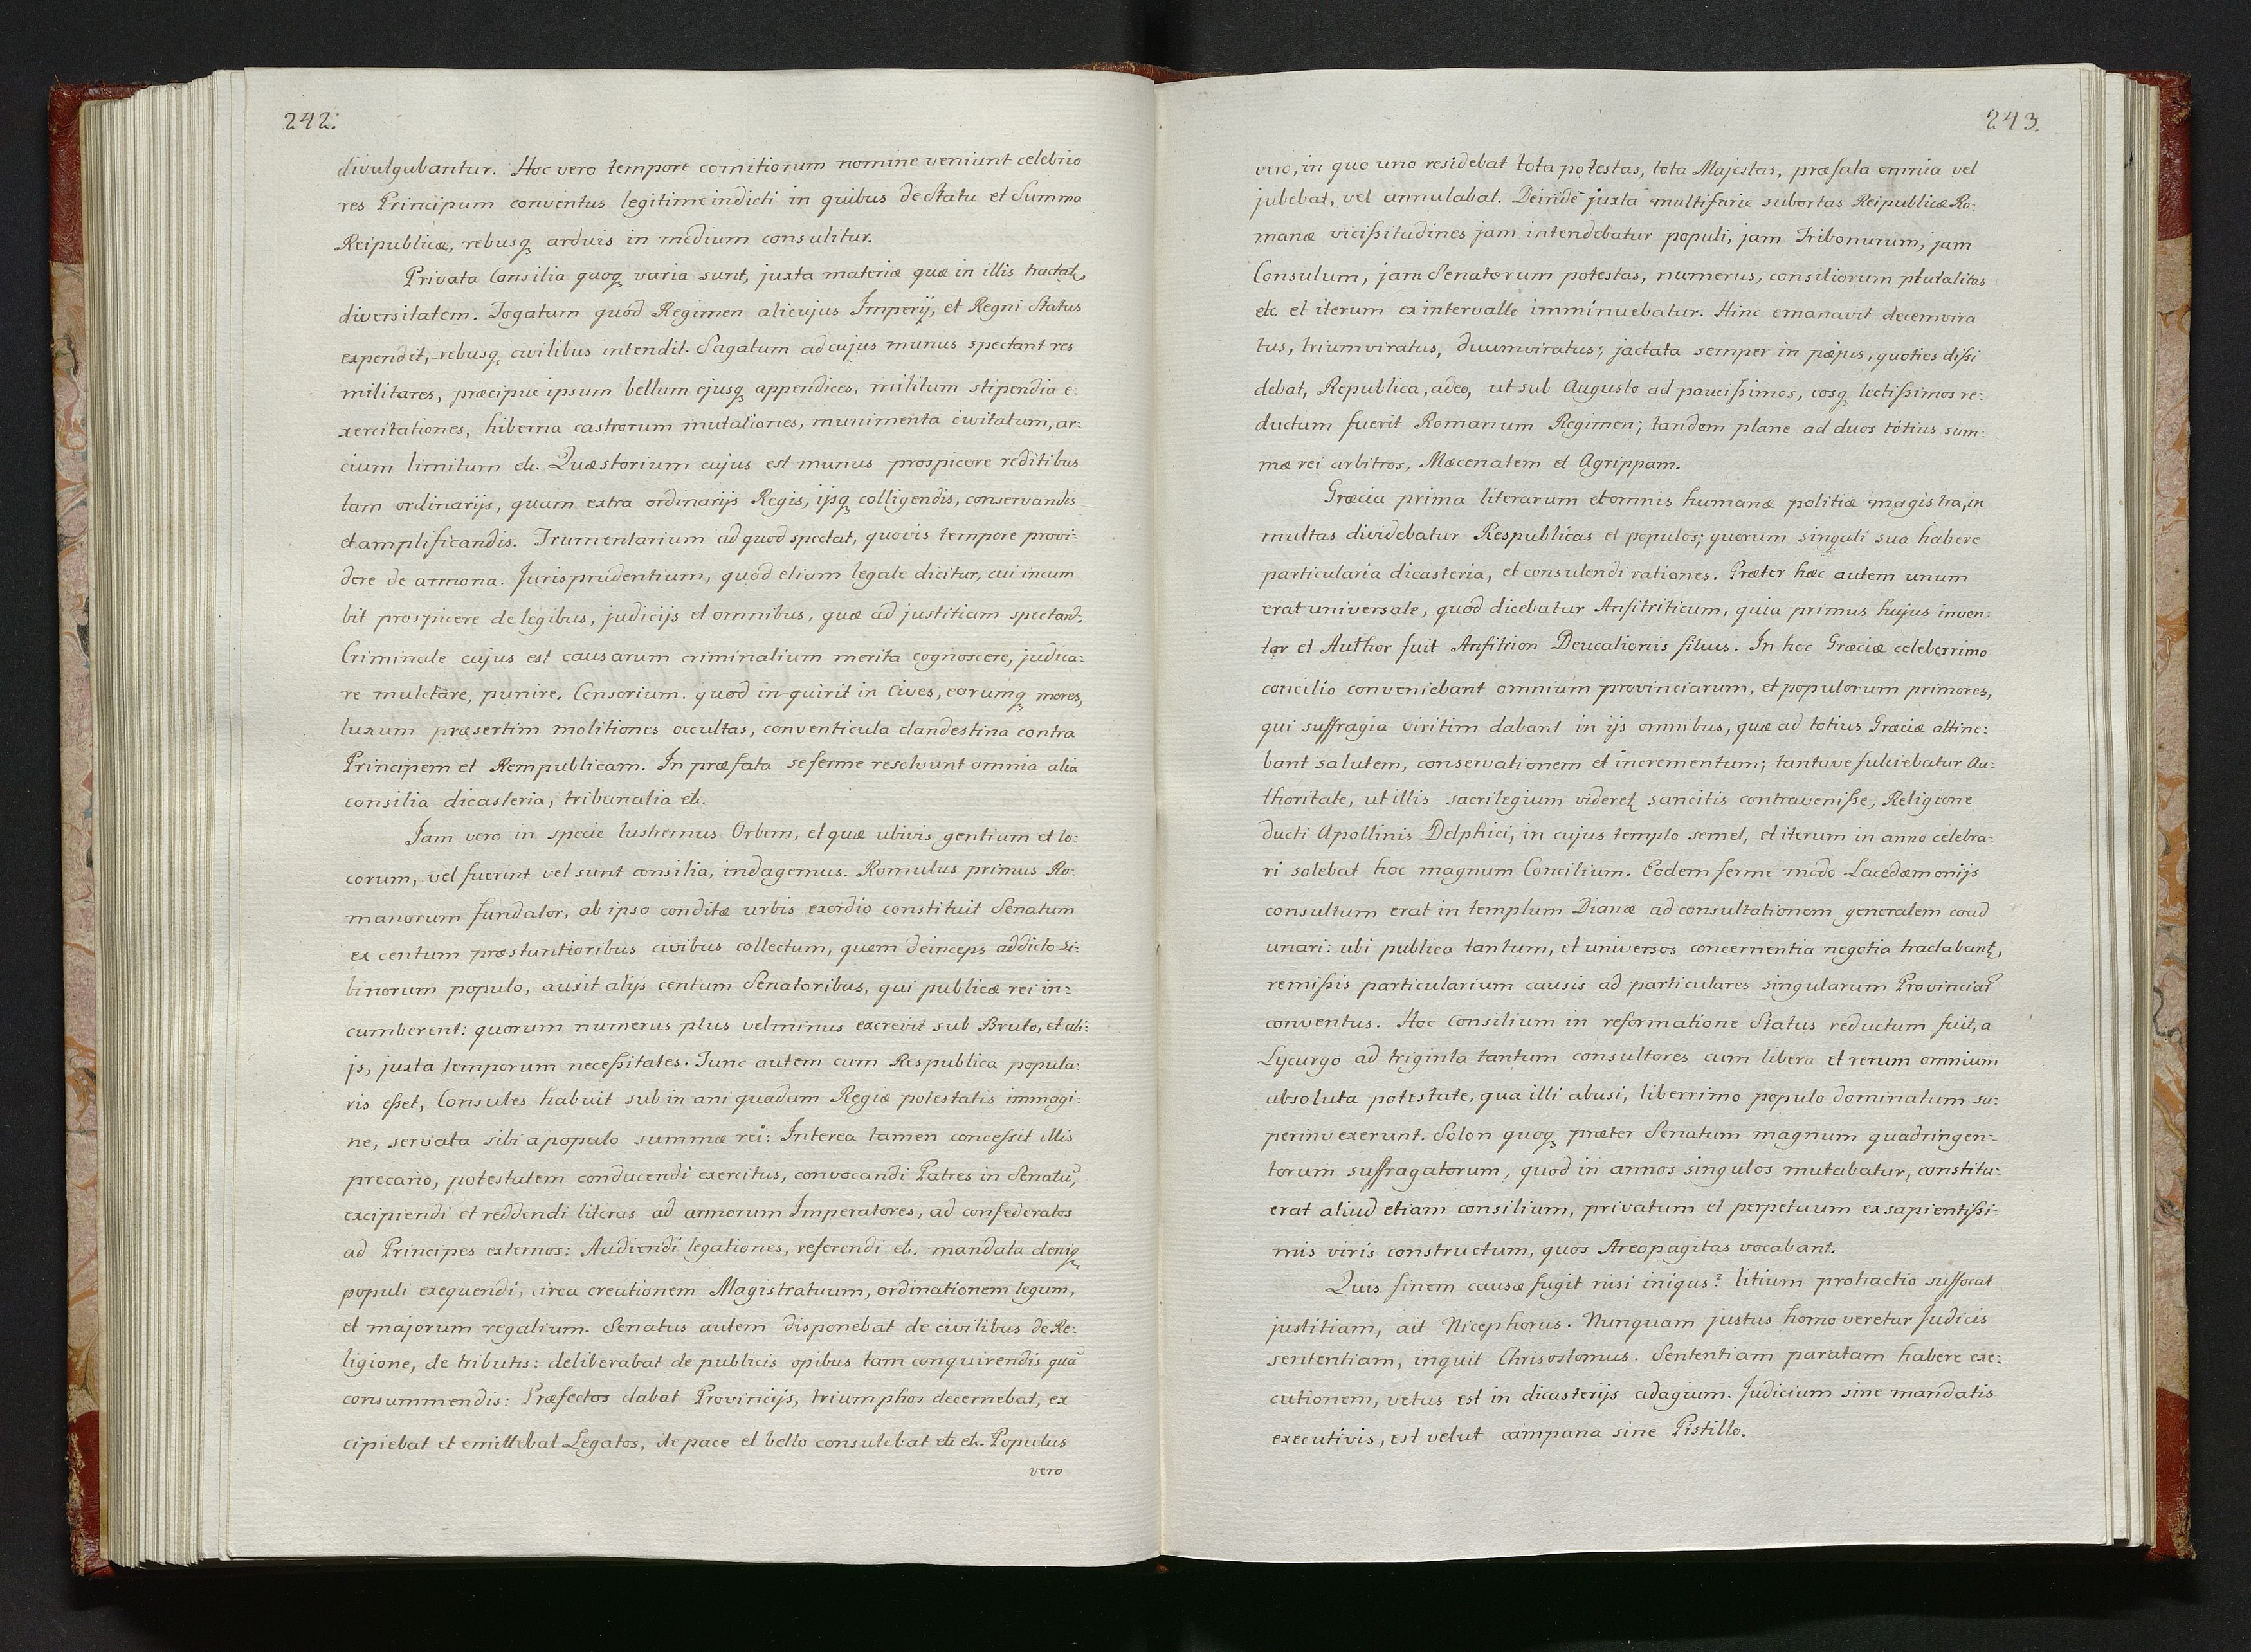 242.
divulgabantur. Hoc vero tempore comitiorum nomine veniunt celebrio
res Principum conventus legitime indicti in quibus de Statu et Summa
Reipublicæ, rebusq arduis in medium consulitur.
Privata Consilia quoq varia sunt, juxta materiæ quæ in illis tractat
diversitatem. Togatum quod Regimen alicujus Imperij, et Regni Status
expendit, rebusq civilibus intendit. Sagatum ad cujus munus spectant res
militares, præcipue ipsum bellum ejusq appendices, militum stipendia e:
xercitationes, hiberna castrorum mutationes, munimenta civitatum, ar:
cium limitum etc. Quæstorium cujus est munus prospicere reditibus
tam ordinarijs, quam extra ordinarijs Regis, ijsq colligendis, conservandis
et amplificandis. Trumentarium ad quod spectat, quovis tempore provi:
dere de annona. Jurisprudentium, quod etiam legale dicitur, cui incum
bit prospicere de legibus, judicijs et omnibus, quæ ad justitiam spectant.
Criminale cujus est causarum criminalium merita cognoscere, judica:
re mulctare, punire. Censorium. quod inquirit in Cives, eorumq mores,
luxum præsertim molitiones occultas, conventicula clandestina contra
Principem et Rempublicam. In præfata se ferme resolvunt omnia alia
consilia dicasteria, tribunalia etc.
Jam vero in specie lustremus Orbem, et quæ ubivis gentium et lo:
corum, vel fuerint vel sunt consilia, indagemus. Romulus primus Ro:
manorum fundator, ab ipso conditæ urbis exordio constituit Senatum
ex centum præstantioribus civibus collectum, quem deinceps addicto Si:
binorum populo, auxit alijs centum Senatoribus, qui publicæ rei in:
cumberent: quorum numerus plus vel minus excrevit sub Bruto, et ali:
js, juxta temporum necessitates. Tunc autem cum Respublica popula:
ris esset, Consules habuit sub in ani quadam Regiæ potestatis immagi:
ne, servata sibi a populo summæ rei: Interea tamen concessit illis
precario, potestatem conducendi exercitus, convocandi Patres in Senatũ,
excipiendi et reddendi literas ad armorum Imperatores, ad confederatos
ad Principes externos: Audiendi legationes, referendi etc. mandata deniq
populi exequendi, circa creationem Magistratuum, ordinationem legum,
et majorum regalium. Senatus autem disponebat de civilibus de Re:
ligione, de tributis: deliberabat de publicis opibus tam conquirendis quã
consummendis: Præfectos dabat Provincijs, triumphos decernebat, ex
cipiebat et emittebat Legatos, de pace et bello consulebat etc etc. Populus
vero
243.
vero, in quo uno residebat tota potestas, tota Majestas, præfata omnia vel
jubebat, vel annulabat. Deinde juxta multifarie subortas Reipublicæ Ro:
manæ vicissitudines jam intendebatur populi, jam Tribonurum, jam
Consulum, jam Senatorum potestas, numerus, consiliorum pluralitas
etc et iterum ex intervallo imminuebatur. Hinc emanavit decemvira
tus, triumviratus, duumviratus; jactata semper in pæjus, quoties dissi
debat, Republica, adeo, ut sub Augusto ad paucissimos, eosq lectissimos re:
ductum fuerit Romanum Regimen; tandem plane ad duos totius sum:
mæ rei arbitros, Mæcenatem et Agrippam.
Græcia prima literarum et omnis humanæ politiæ magistra, in
multas dividebatur Respublicas et populos; quorum singuli sua habere
particularia dicasteria, et consulendi rationes. Præter hæc autem unum
erat universale, quod dicebatur Anfitriticum, quia primus hujus inven:
tor et Author fuit Anfitrion Deucalionis filius. In hoc Græciæ celeberrimo
concilio conveniebant omnium provinciarum, et populorum primores,
qui suffragia viritim dabant in ijs omnibus, quæ ad totius Græciæ attine:
bant salutem, conservationem et incrementum; tantave fulciebatur Au:
thoritate, ut illis sacrilegium videret sancitis contravenisse, Religione
ducti Apollinis Delphici, in cujus templo semel, et iterum in anno celebra:
ri solebat hoc magnum Concilium. Eodem ferme modo Lacedæmonijs
consultum erat in templum Dianæ ad consultationem generalem coad
unari: ubi publica tantum, et universos concernentia negotia tractabant,
remissis particularium causis ad particulares singularum Provinciar
conventus. Hoc Consilium in reformatione Status reductum fuit, a
Lycurgo ad triginta tantum consultores cum libera et rerum omnium
absoluta potestate, qua illi abusi, liberrimo populo dominatum su:
perinvexerunt. Solon quoq præter Senatum magnum quadringen:
torum suffragatorum, quod in annos singulos mutabatur, constitu:
erat aliud etiam consilium, privatum et perpetuum ex sapientissi:
mis viris constructum, quos Areopagitas vocabant.
Quis finem causæ fugit nisi iniqus? litium protractio suffocat
justitiam, ait Nicephorus. Nunquam justus homo veretur Judicis
sententiam, inquit Chrisostomus. Sententiam paratam habere exe:
cutionem, vetus est in dicasterijs adagium. Judicium sine mandatis
executivis, est velut campana sine Pistillo.